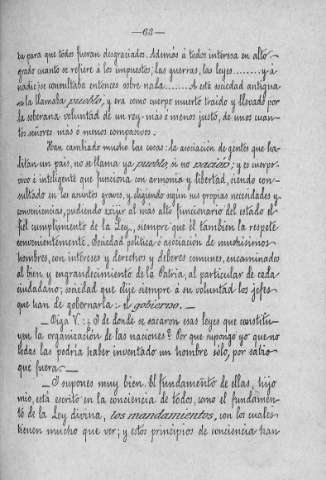 —63—
ba para que todos fueran desgraciados. Además á todos interesa en alto
grado cuanto se refiere á los impuestos; las guerras, las leyes........ y á
nadie se consultaba entonces sobre nada........ A esta sociedad antigua
se la llamaba pueblo, y era como cuerpo muerto traido y llevado por
la soberana voluntad de un rey mas ó menos justo, de unos cuan-
tos señores mas ó menos compasivos.
Han cambiado mucho las cosas: la asociación de gentes que ha-
bitan un país, no se llama ya pueblo, si no nación; y es cuerpo
vivo é inteligente que funciona con armonía y libertad, siendo con-
sultado en los asuntos graves, y eligiendo segun sus propias necesidades y
conveniencias, pudiendo exijir al mas alto funcionario del estado el
fiel cumplimiento de la Ley, siempre que él tambien la respete
convenientemente. Sociedad política ó asociacion de muchísimos
hombres, con intereses y derechos y deberes comunes, encaminados
al bien y engrandecimiento de la Patria, al particular de cada
ciudadano; sociedad que elije siempre á su voluntad los jefes
que han de gobernarla: el gobierno.—
—Diga V.: ¿Y de donde se sacaron esas leyes que constitu-
yen la organización de las naciones? Por que supongo yo que no
todas las podría haber inventado un hombre sólo, por sabio
que fuera.—
—Y supones muy bien. El fundamento de ellas, hijo
mio, está escrito en la conciencia de todos, como el fundamen-
to de la Ley divina, los mandamientos, con los cuales
tienen mucho que ver; y estos principios de conciencia han